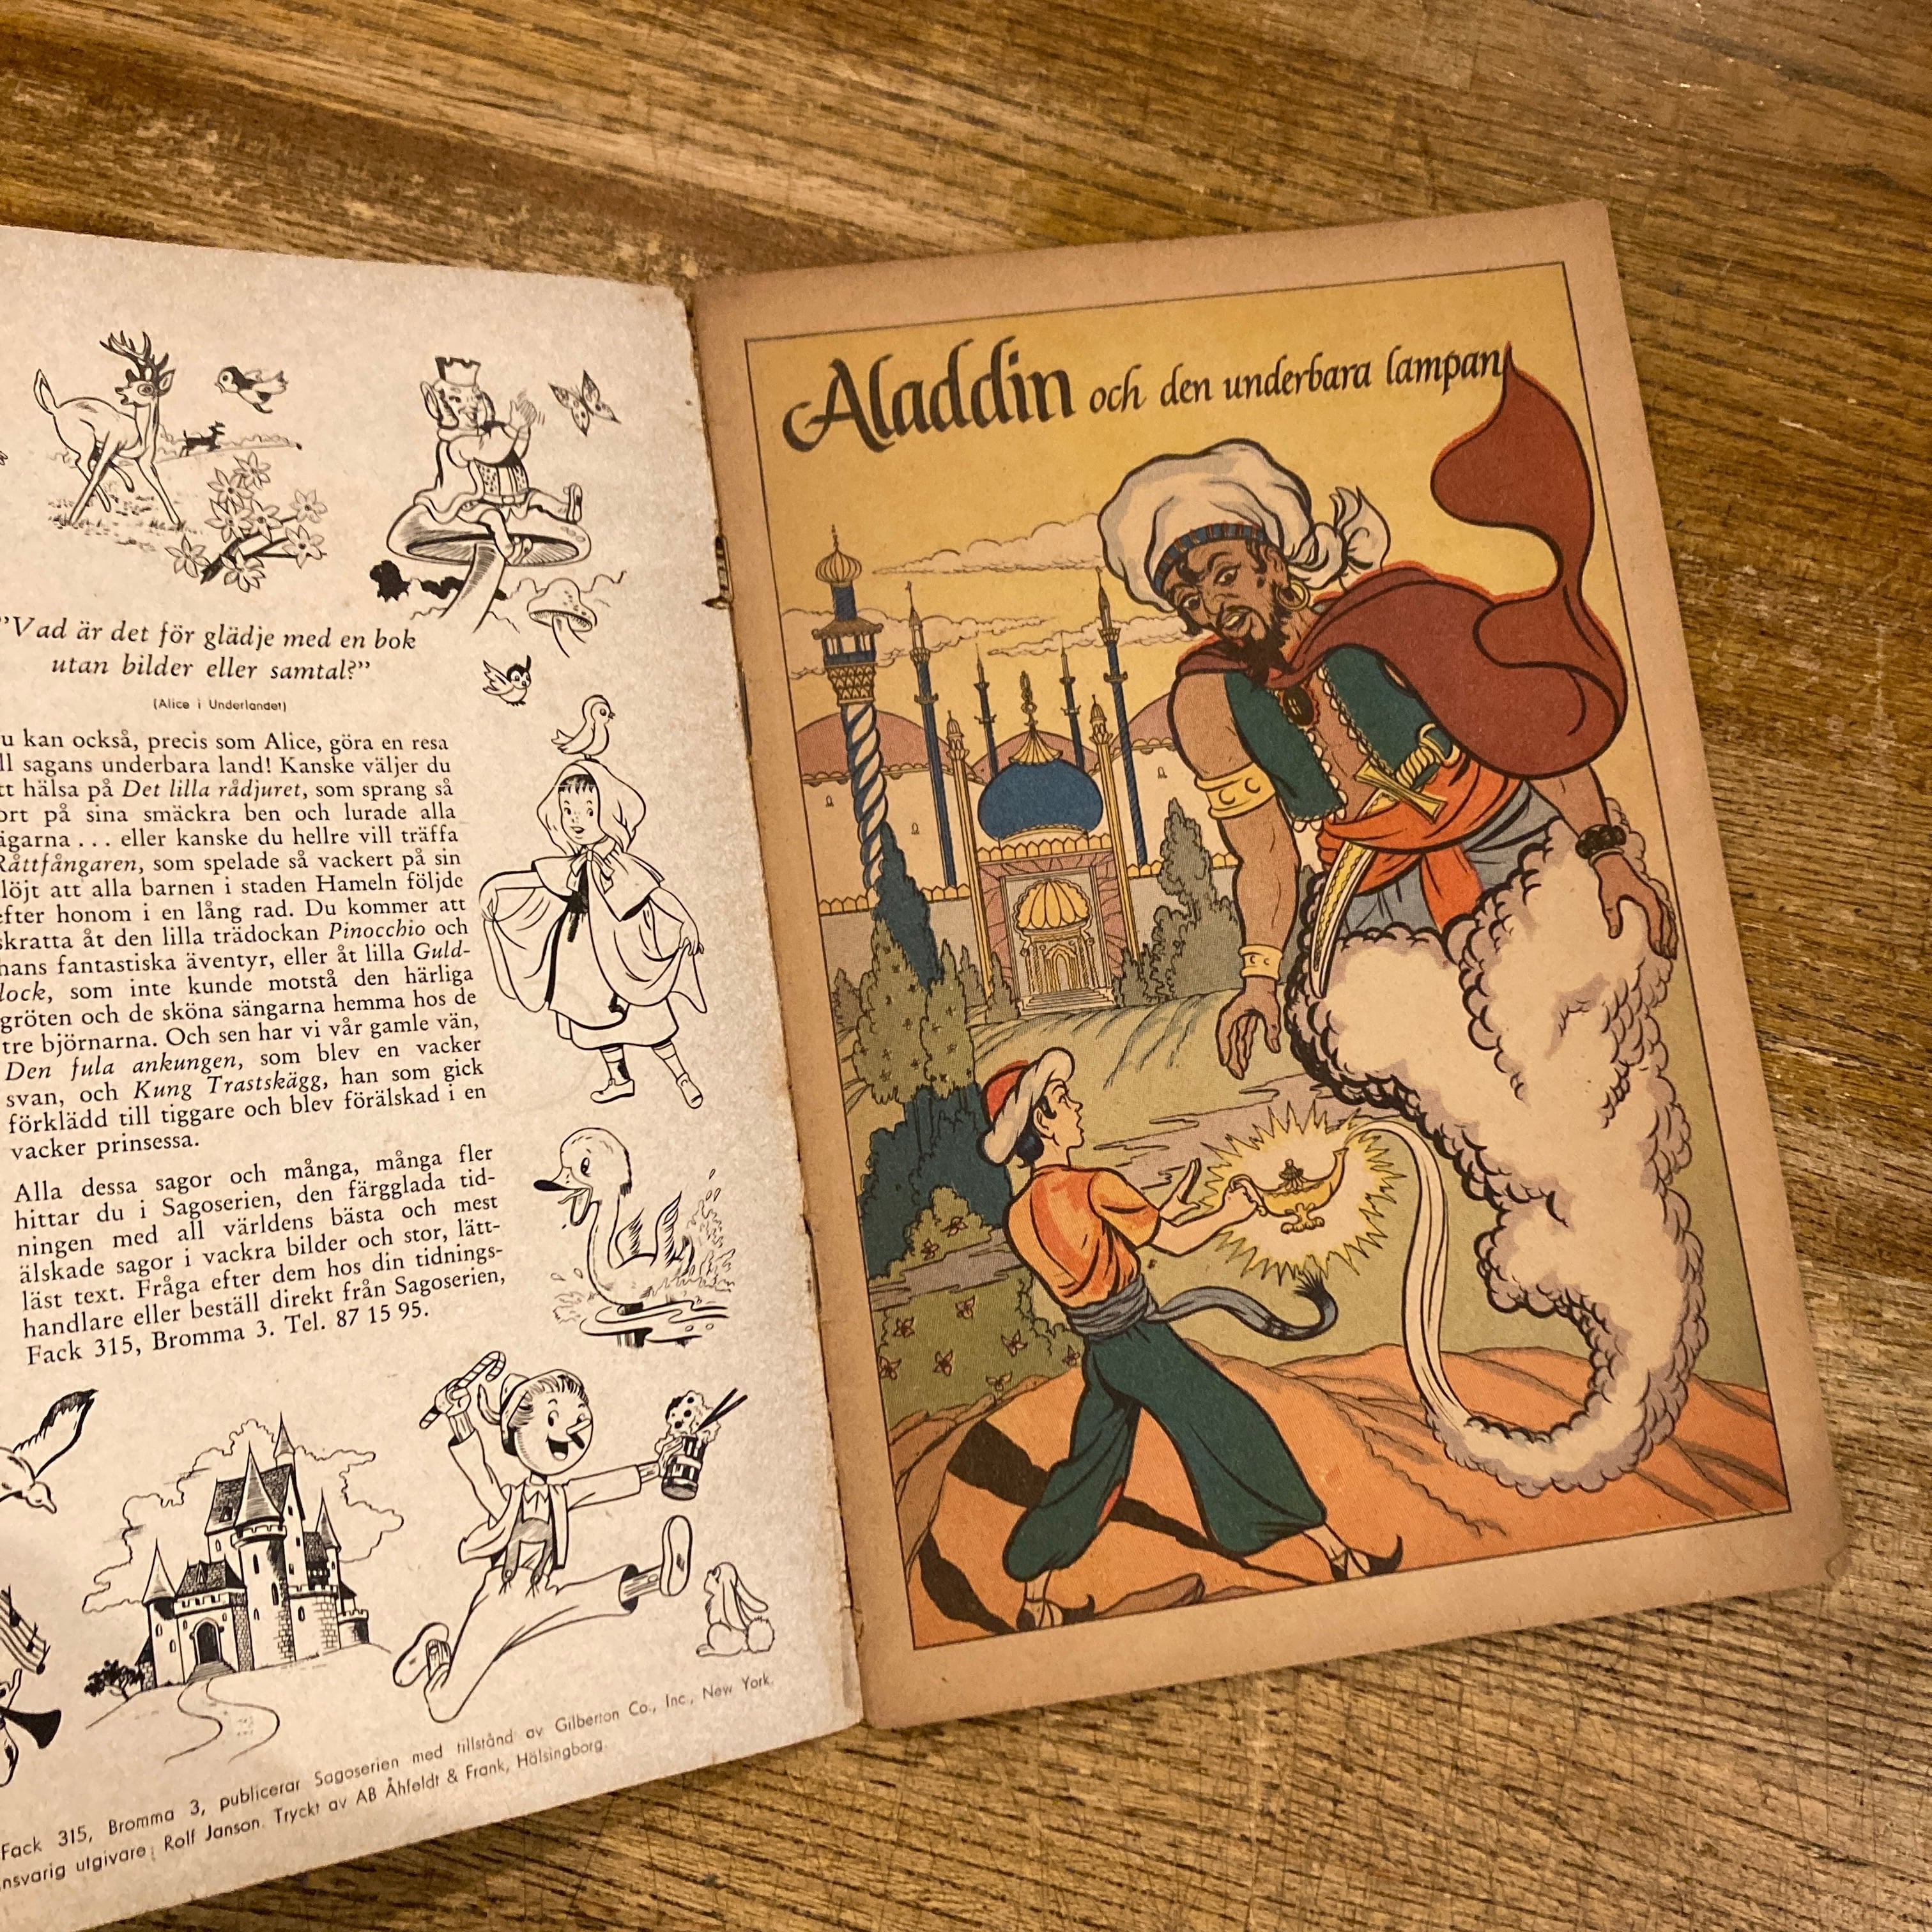 "Vad är det för glädje med en bok
utan bilder eller samtal?"
(Alice i Underlandet)
u kan också, precis som Alice, göra en resa
ll sagans underbara land! Kanske väljer du
tt hälsa på Det lilla rådjuret, som sprang så
ort på sina smäckra ben och lurade alla
ägarna . . . eller kanske du hellre vill träffa
Råttfångaren, som spelade så vackert på sin
löjt att alla barnen i staden Hameln följde
efter honom i en lång rad. Du kommer att
skratta åt den lilla trädockan Pinocchio och
hans fantastiska äventyr, eller åt lilla Guld-
lock, som inte kunde motstå den härliga
gröten och de sköna sängarna hemma hos de
tre björnarna. Och sen har vi vår gamle vän,
Den fula ankungen, som blev en vacker
svan, och Kung Trastskägg, han som gick
förklädd till tiggare och blev förälskad i en
vacker prinsessa.
Alla dessa sagor och många, många fler
hittar du i Sagoserien, den färgglada tid-
ningen med all världens bästa och mest
älskade sagor i vackra bilder och stor, lätt-
läst text. Fråga efter dem hos din tidnings-
handlare eller beställ direkt från Sagoserien,
Fack 315, Bromma 3. Tel. 87 15 95.
Fack 315, Bromma 3, publicerar Sagoserien med tillstånd av Gilberton Co., Inc., New York.
nsvarig utgivare: Rolf Janson. Tryckt av AB Åhfeldt & Frank, Hälsingborg.
Aladdin och den underbara lampan